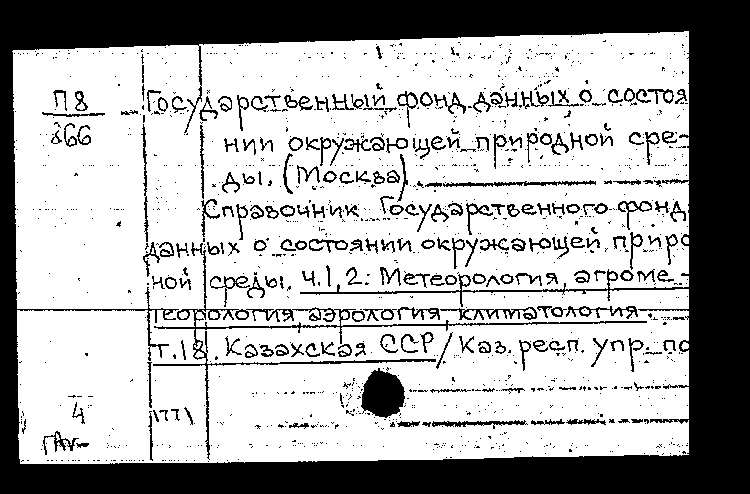 П8
866
Государственный фонд данных о состоя
нии окружающей природной сре-
ды. (Москва)
Справочник Государственного фонд
данных о состоянии окружающей приро
ной среды. Ч.1,2: Метеорология, агроме-
теорология, аэрология, климатология.
т.18. Казахская ССР / Каз. респ. упр. по
4